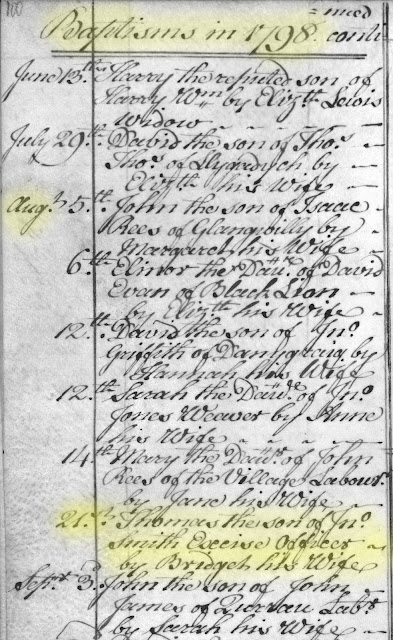 100
=nued
Baptisms in 1798. conti
June 13.th Harry the reputed son of
Harry Wm by Elizth Lewis
Widow
July 29.th David the son of Thos
Thos of by
Elizth his Wife
Augt 5.th John the son of Isaac
Rees of by
Margaret his Wife
6.th Elinor the Daur of David
Evan of Black Lion
by Elizth his Wife
12.th David the son of Jno
Griffith of Danygraig by
Hannah his Wife
12.th Sarah the Daur of Jno
Jones Weaver by Anne
his Wife
14.th Mary the Daur of John
Rees of the Village Labour
by Jane his Wife
21.st Thomas the son of Jno
Smith Excise Officer
by Bridget his Wife
Sept 3.d John the son of John
James of Labr
by Sarah his Wife